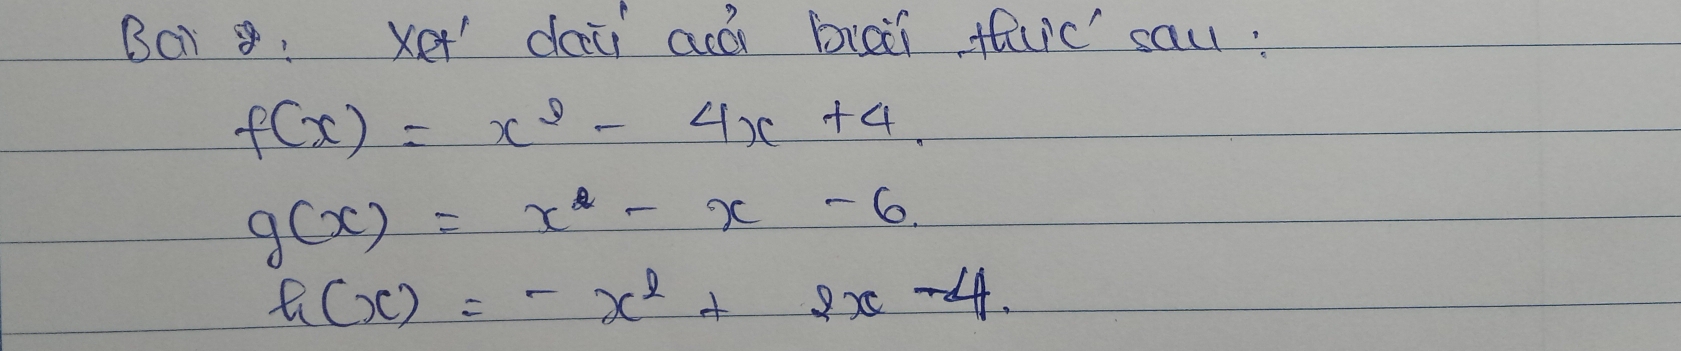 Bài 2: Xét dấu của biểu thức sau:
f(x) = x² - 4x + 4.
g(x) = x² - x - 6.
h(x) = - x² + 2x - 4.